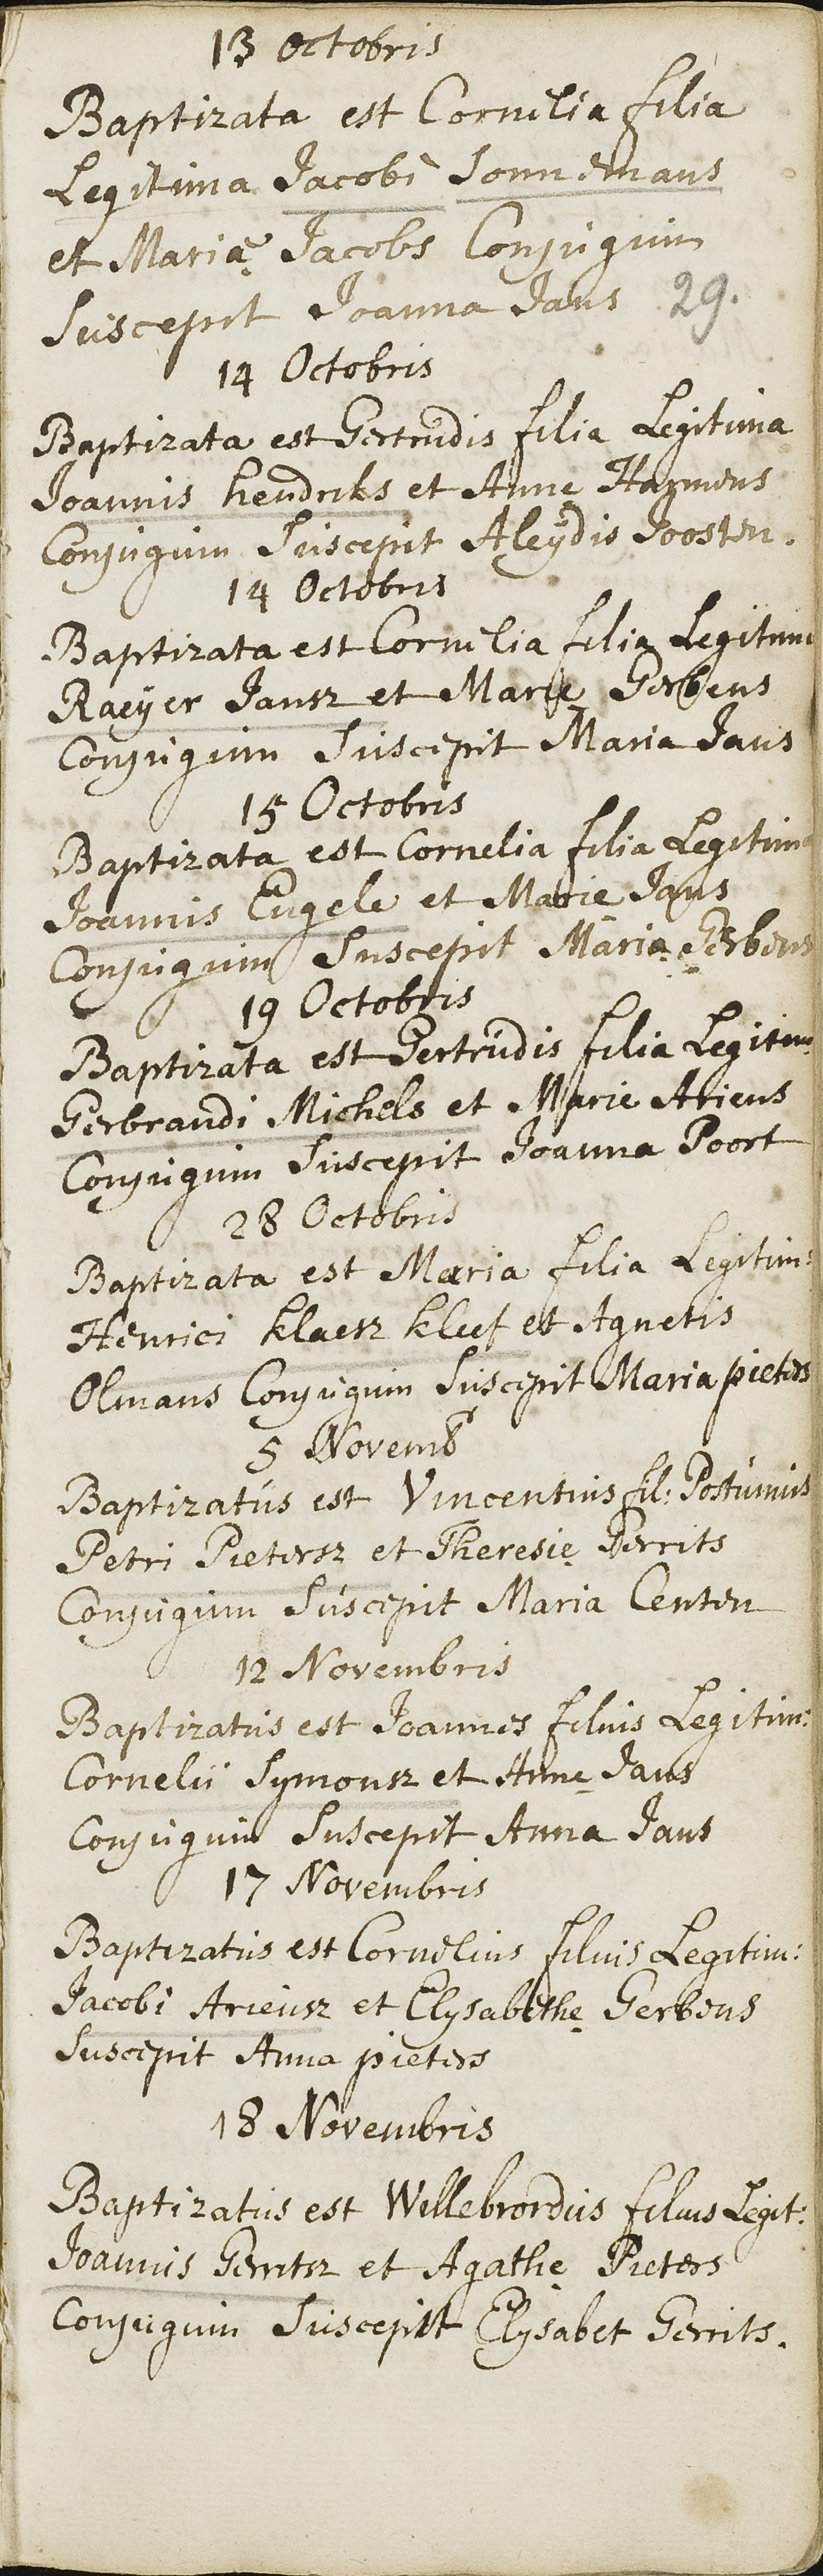 13 Octobris
Baptizata est Cornelia filia
Legitima Jacobi Sonnemans
et Mariæ Jacobs Conjugum
Suscepit Joanna Jans 29.
14 Octobris
Baptizata est Gertrudis filia Legitima
Joannis hendriks et Anne Harmens
Conjugum Suscepit Aleydis Joosten.
14 Octobris
Baptizata est Cornelia filia Legitima
Raeyer Jansz et Marie Gerbens
Conjugum Suscepit Maria Jans
15 Octobris
Baptizata est Cornelia filia Legitima
Joannis Engele et Marie Jans
Conjugum Suscepit Maria Gerbens
19 Octobris
Baptizata est Gertrudis filia Legitim:
Gerbrandi Michels et Marie Ariens
Conjugum Suscepit Joanna Poort
28 Octobris
Baptizata est Maria filia Legitim:
Henrici klaesz kleef et Agnetis
Olmans Conjugum Suscepit Maria pieters
5 Novemb
Baptizatus est Vincentius fil: Postumus
Petri Pietersz et Theresię Gerrits
Conjugum Suscepit Maria Centen
12 Novembris
Baptizatus est Joannes filius Legitim:
Cornelii Symonsz et Annę Jans
Conjugum Suscepit Anna Jans
17 Novembris
Baptizatus est Cornelius filius Legitim:
Jacobi Ariensz et Elysabethę Gerbens
Suscepit Anna pieters
18 Novembris
Baptizatus est Willebrordus filius Legit:
Joannis Gerritsz et Agathę Pieters
Conjugum Suscepit Elysabet Gerrits.